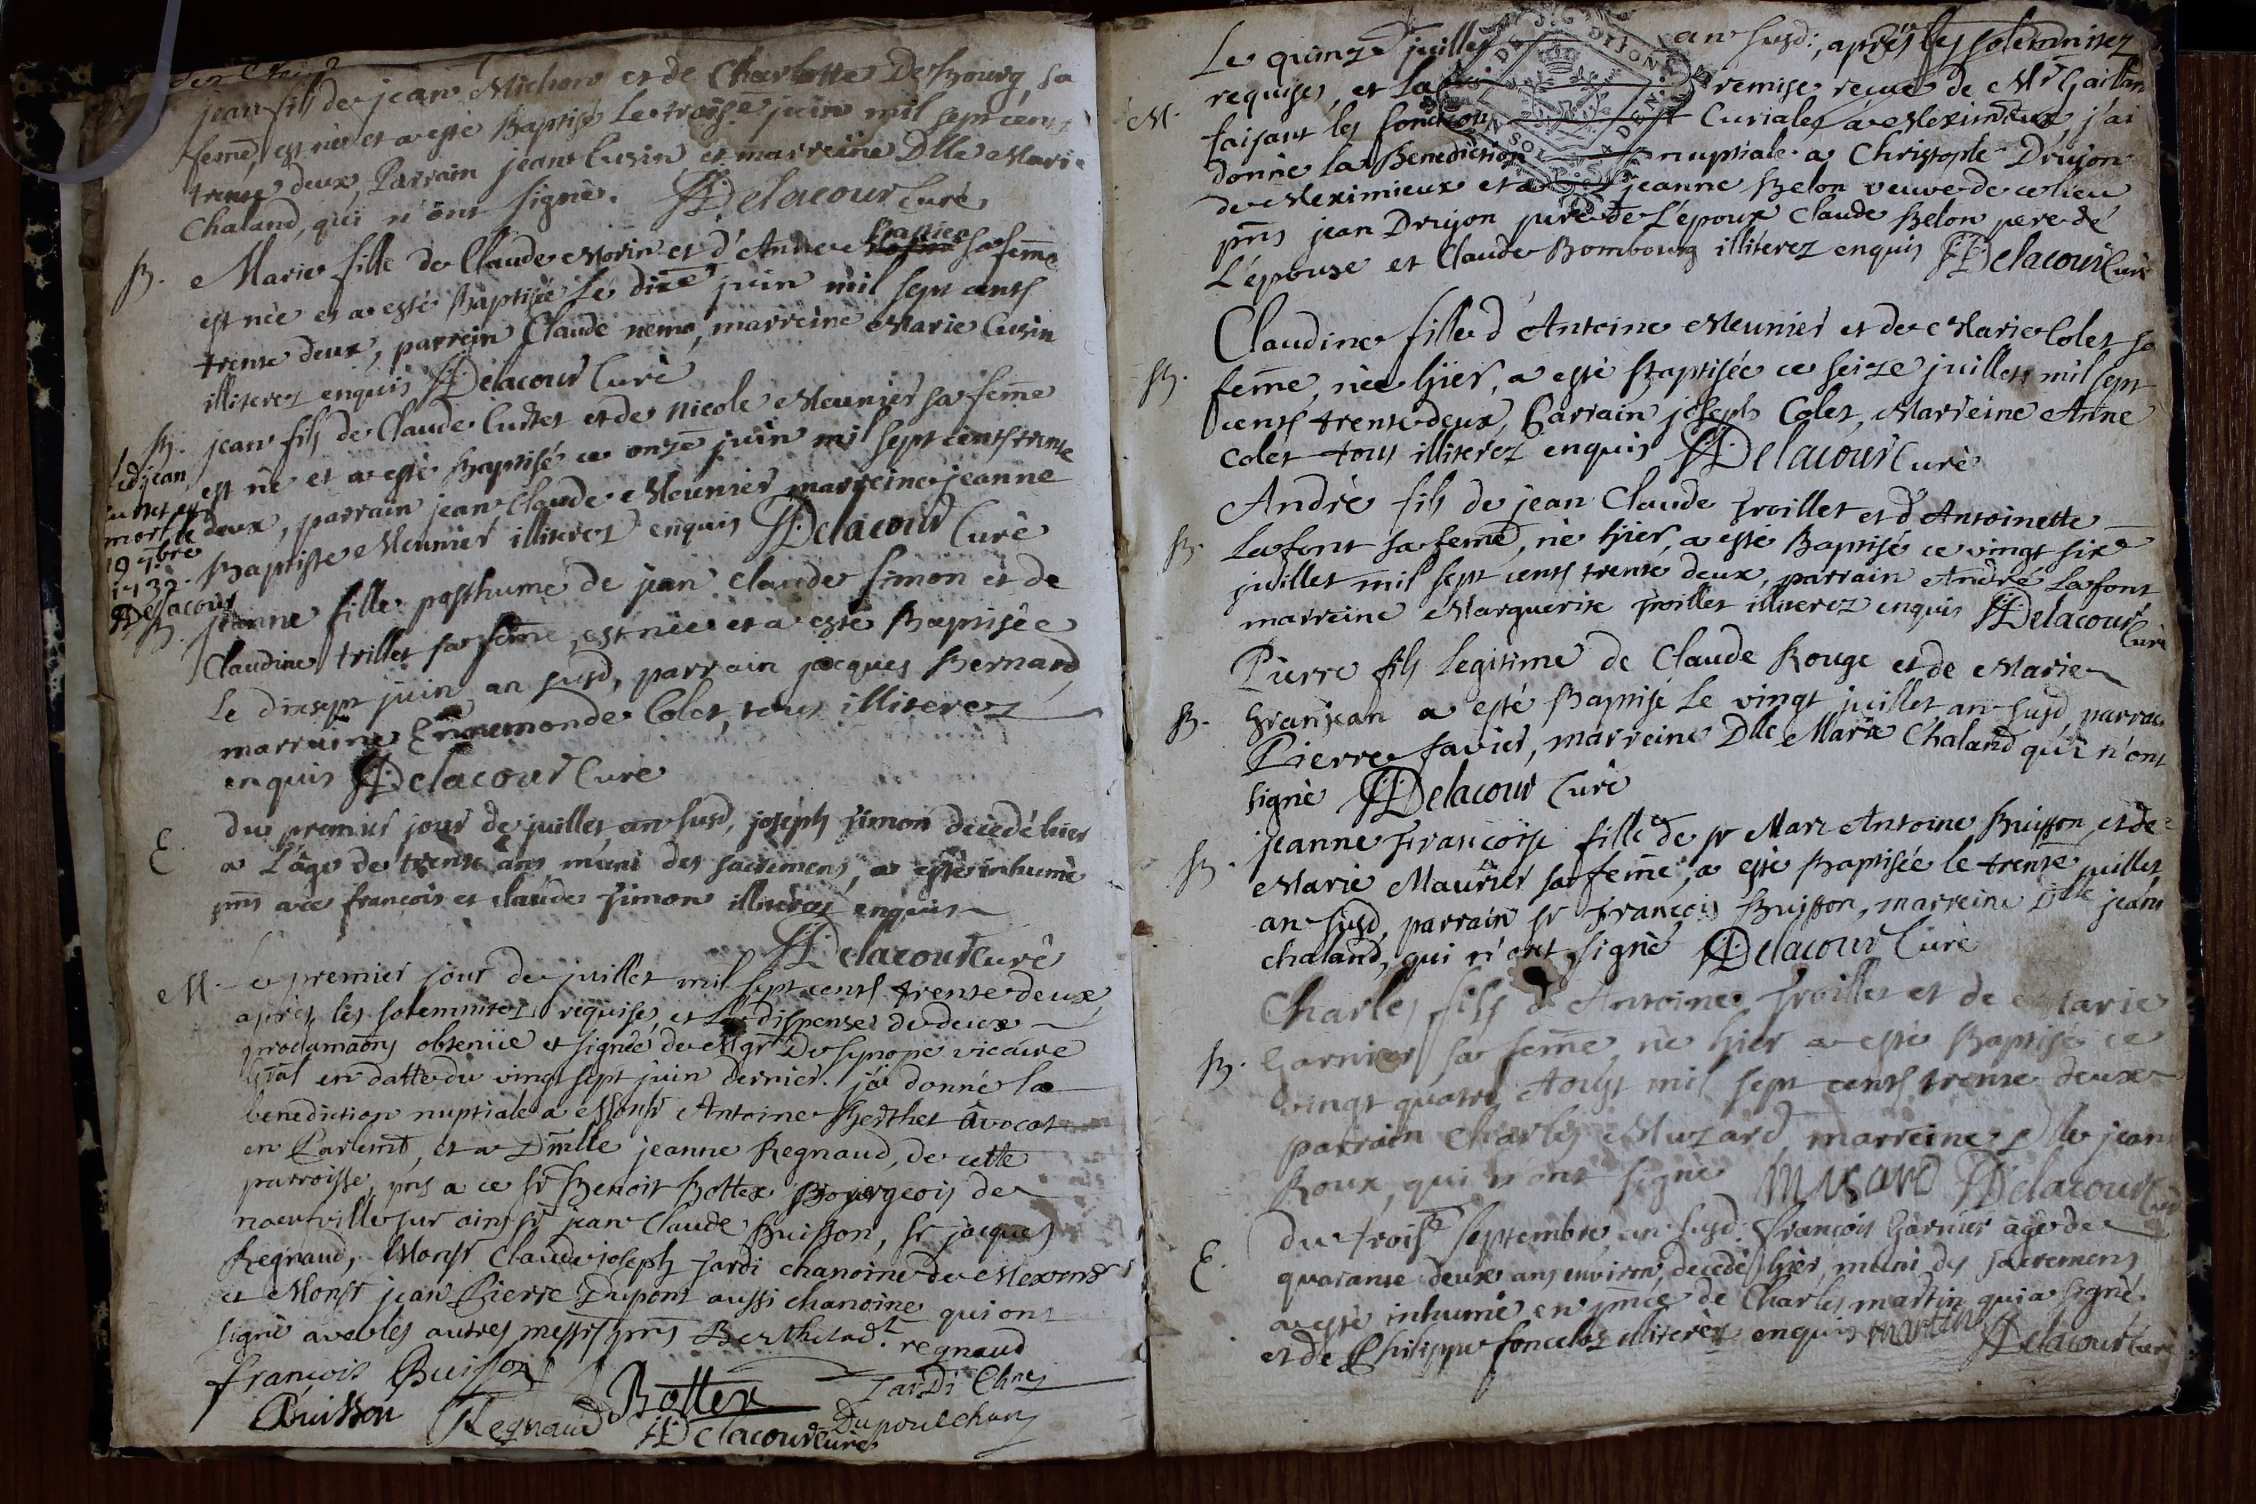 jean fils de jean Michon et de Charlotte Debourg, sa
feme, est né et a esté Baptisé le treise juin mil sept cents
trente deux, Parrain jean Cusin et marreine Dlle Marie
Chaland, qui n'ont signé. Delacour Curé
B. Marie fille de Claude Morin et d'Anne sa feme
est née et a esté Baptisée le dixe juin mil sept cents
trente deux, parrein Claude nemo, marreine Marie Cusin
illiterez enquis Delacour Curé
B. jean fils de Claude Curtet et de Nicole Meunier sa feme
est né et a esté Baptisé ce onze juin mil sept cents trente
deux, parrain jean Claude Meunier marreine jeanne
Baptiste Meunier illiterez enquis Delacour Curé
led jean
Curtet est
mort le
19 7bre
1732.
Delacour
B. jeanne fille posthume de jean Claude Simon et de
Claudine trillet sa feme, est née et a esté Baptisée
le dixsept juin an susd, parrain jacques Bernard,
marraine Ennemonde Colet, tous illiterez
enquis Delacour Curé
E. du premier jour de juillet an susd, joseph Simon decedé hier
a l'age de trente ans muni des sacremens, a esté inhumé
pnts a ce francois et claude Simon illiterez enquis
Delacour Curé
M. Le premier jour de juillet mil sept cents trente deux
apres les solemnitez requises, et la dispense de deux
proclamaons obtenüe et signée de Mgr De Synope vicaire
gnal en datte du vingt sept juin dernier. j'ai donné la
benediction nuptiale a Monsr Antoine Berthet avocat
en Parlemt, et a Dmlle jeanne Regnaud, de cette
parroisse, pnts a ce Sr Benoit Bottex Bourgeois de
neuville sur ains Sr jean Claude Buisson, Sr jacques
Regnaud, Monsr Claude joseph jardi chanoine de Meximx
et Monsr jean Pierre Dupont aussi chanoine qui ont
signé avec les autres messrs pnts Berthet adt. regnaud
françois Buisson Jardi Chne
Buisson Regnaud Bottex Dupont chan
Delacour Curé
Le quinze juillet an susd:, aprés les solemnitez
M. requises, et la remise reçüe de Mr Gaillan
faisant les fonctions Curiales a Meximieux, j'ai
donné la Benediction nuptiale a Christophe Drujon
de Meximieux et a jeanne Belon veuve de ce lieu
pnts jean Drujon pere de L'époux Claude Belon pere de
L'épouse et Claude Bombourg illiterez enquis Delacour Curé
B. Claudine fille d'Antoine Meunier et de Marie Colet sa
feme, née hier, a esté Baptisée ce seize juillet mil sept
cents trente deux, Parrain joseph Colet, Marreine Anne
Colet tous illiterez enquis Delacour Curé
B. André fils de jean Claude Froillet et d'Antoinette
Lafont sa feme, né hier, a esté Baptisé ce vingt sixe
juillet mil sept cents trente deux, parrain André Lafont
marreine Marguerite Froillet illiterez enquis Delacour
Curé
B. Pierre fils legitime de Claude Rouge et de Marie
Granjean a esté Baptisé le vingt juillet an susd, parrain
Pierre favier, marreine Dlle Marie Chaland qui n'ont
signé Delacour Curé
B. jeanne Françoise fille de Sr Marc Antoine Buisson et de
Marie Maurier sa feme, a esté Baptisée le trente juillet
an susd, parrain Sr François Buisson, marreine Dlle jeane
chaland, qui n'ont signé Delacour Curé
B. Charles fils d'Antoine Froillet et de Marie
Garnier sa feme, né hier a esté Baptisé ce
vingt quatre Aoust mil sept cents trente deux
parrain Charles Muzard marreine Dlle jeane
Roux, qui n'ont signé Musard Delacour Curé
E. du troise septembre an susd: François Garnier agé de
quarante deux ans environ, decedé hier, muni des sacremens
a esté inhumé en pnce de Charles martin qui a signé
et de Philippe foncelas illiterez enquis martin Delacour Curé